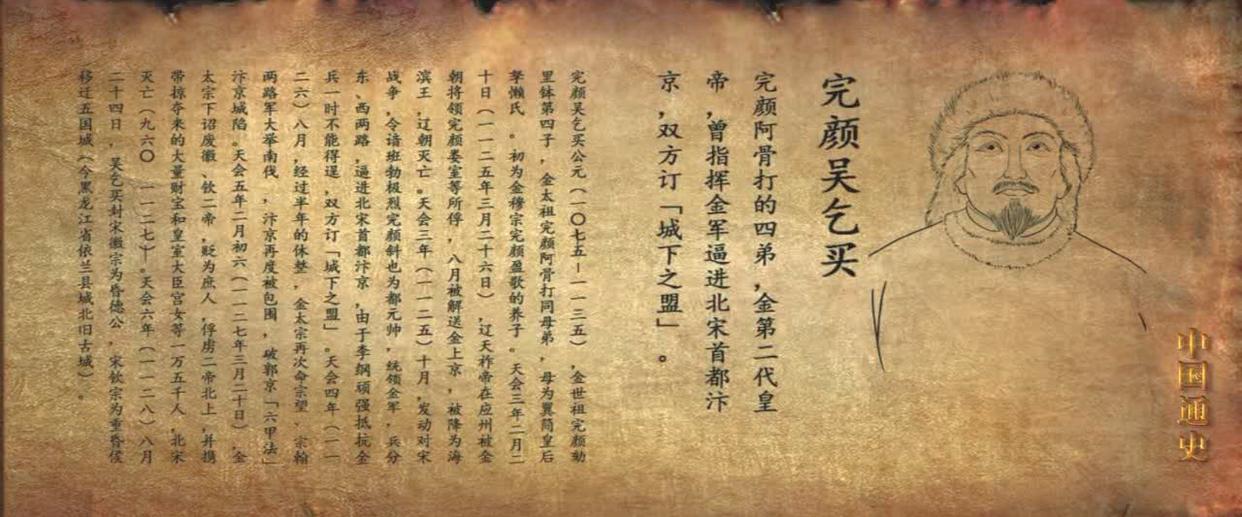 中国通史
完颜吴乞买
完颜阿骨打的四弟，金第二代皇
帝，曾指挥金军逼进北宋首都汴
京，双方订「城下之盟」。
完颜吴乞买公元（一〇七五－一一三五），金世祖完颜劾
里钵第四子，金太祖完颜阿骨打同母弟，母为翼简皇后
拏懒氏。初为金穆宗完颜盈歌的养子。天会三年二月二
十日（一一二五年三月二十六日），辽天祚帝在应州被金
朝将领完颜娄室等所俘，八月被解送金上京，被降为海
滨王，辽朝灭亡。天会三年（一一二五）十月，发动对宋
战争，令谙班勃极烈完颜斜也为都元帅，统领金军，兵分
东、西两路，逼进北宋首都汴京，由于李纲顽强抵抗金
兵一时不能得逞，双方订「城下之盟」。天会四年（一一
二六）八月，经过半年的休整，金太宗再次命宗望、宗翰
两路军大举南伐，汴京再度被包围，破郭京「六甲法」
汴京城陷。天会五年二月初六（一一二七年三月二十日），金
太宗下诏废徽、钦二帝，贬为庶人，俘虏二帝北上，并携
带掠夺来的大量财宝和皇室大臣宫女等一万五千人，北宋
灭亡（九六〇－一一二七）。天会六年（一一二八）八月
二十四日，吴乞买封宋徽宗为昏德公，宋钦宗为重昏侯
移迁五国城（今黑龙江省依兰县城北旧古城）。